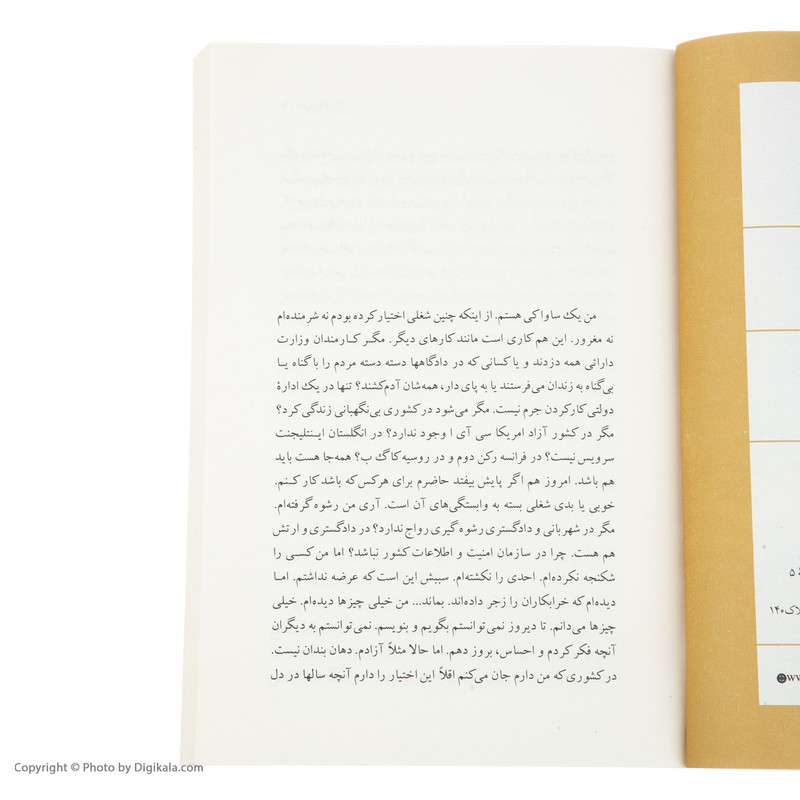 من یک ساواکی هستم. از اینکه چنین شغلی اختیار کرده بودم نه شرمنده‌ام
نه مغرور. این هم کاری است مانند کارهای دیگر. مگر کارمندان وزارت
دارائی همه دزدند و یا کسانی که در دادگاهها دسته دسته مردم را با گناه یا
بی‌گناه به زندان می‌فرستند یا به پای دار، همه‌شان آدم‌کشند؟ تنها در یک ادارهٔ
دولتی کار کردن جرم نیست. مگر می‌شود در کشوری بی‌نگهبانی زندگی کرد؟
مگر در کشور آزاد امریکا سی آی ا وجود ندارد؟ در انگلستان اینتلیجنت
سرویس نیست؟ در فرانسه رکن دوم و در روسیه کا گ ب؟ همه‌جا هست باید
هم باشد. امروز هم اگر پایش بیفتد حاضرم برای هرکس که باشد کار کنم.
خوبی یا بدی شغلی بسته به وابستگی‌های آن است. آری من رشوه گرفته‌ام.
مگر در شهربانی و دادگستری رشوه گیری رواج ندارد؟ در دادگستری و ارتش
هم هست. چرا در سازمان امنیت و اطلاعات کشور نباشد؟ اما من کسی را
شکنجه نکرده‌ام. احدی را نکشته‌ام. سببش این است که عرضه نداشتم. اما
دیده‌ام که خرابکاران را زجر داده‌اند. بماند... من خیلی چیزها دیده‌ام. خیلی
چیزها می‌دانم. تا دیروز نمی‌توانستم بگویم و بنویسم. نمی‌توانستم به دیگران
آنچه فکر کردم و احساس، بروز دهم. اما حالا مثلاً آزادم. دهان بندان نیست.
در کشوری که من دارم جان می‌کنم اقلاً این اختیار را دارم آنچه سالها در دل
۵
لاک۱۴۰
ww
Copyright © Photo by Digikala.com